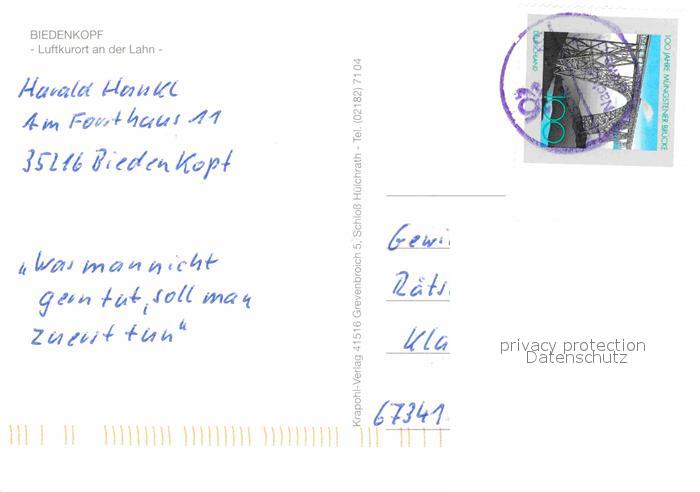 BIEDENKOPF
- Luftkurort an der Lahn -
Harald Hankl
Am Forsthaus 11
35216 Biedenkopf
„Was man nicht
gern tut, soll man
zuerst tun“
Krapohl-Verlag 41516 Grevenbroich 5, Schloß Hülchrath - Tel. (02182) 71 04
100 JAHRE MÜNGSTENER BRÜCKE
DEUTSCHLAND
100
Gewi
Räts
Kla
67341
privacy protection
Datenschutz